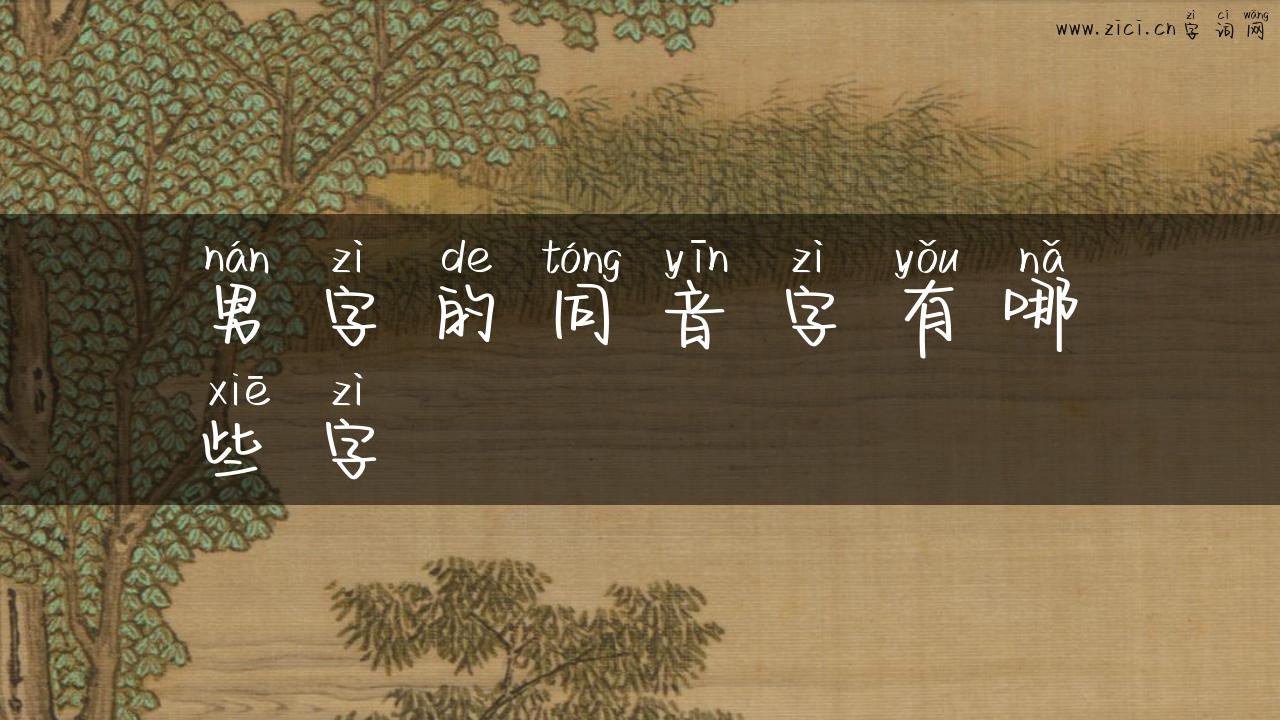 zì cí wǎng
www.zici.cn字词网
nán zì de tóng yīn zì yǒu nǎ
男字的同音字有哪
xiē zì
些字